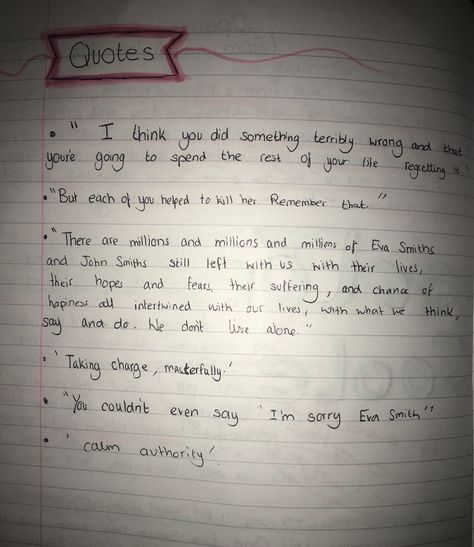 Quotes
• " I think you did something terribly wrong and that
you're going to spend the rest of your life regretting it."
• "But each of you helped to kill her. Remember that. "
• "There are millions and millions and millions of Eva Smiths
and John Smiths still left with us with their lives,
their hopes and fears, their suffering, and chance of
hapiness all intertwined with our lives, with what we think,
say and do. We don't live alone."
• 'Taking charge, masterfully.'
• "You couldn't even say "I'm sorry Eva Smith""
• 'calm authority'.